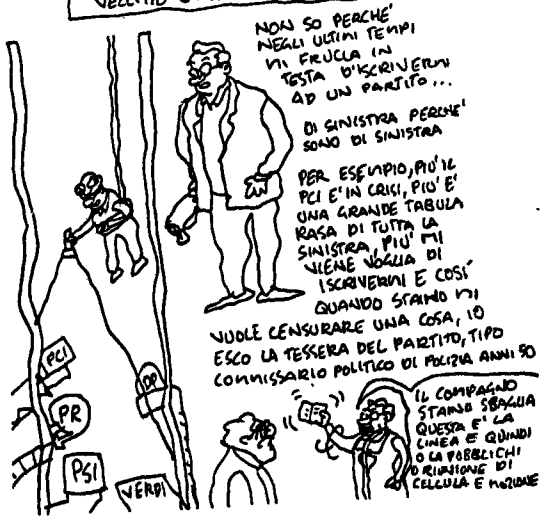 NON SO PERCHE'
NEGLI ULTIMI TEMPI
MI FRULLA IN
TESTA D'ISCRIVERMI
AD UN PARTITO...
DI SINISTRA PERCHE'
SONO DI SINISTRA
PER ESEMPIO, PIU' IL
PCI E' IN CRISI, PIU' E'
UNA GRANDE TABULA
RASA DI TUTTA LA
SINISTRA, PIU' MI
VIENE VOGLIA DI
ISCRIVERMI E COSI'
QUANDO STAINO MI
VUOLE CENSURARE UNA COSA, IO
ESCO LA TESSERA DEL PARTITO, TIPO
COMMISSARIO POLITICO DI POLIZIA ANNI 50
PCI
PR
PSI
DP
VERDI
IL COMPAGNO
STAINO SBAGLIA
QUESTA E' LA
LINEA E QUINDI
O LA PUBBLICHI
O RIUNIONE DI
CELLULA E MOZIONE